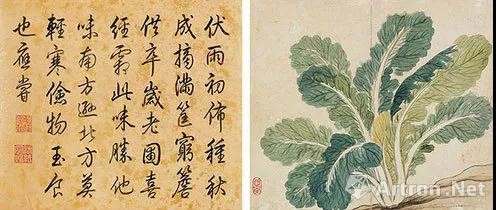 伏雨初佈種秋
成摘滿筐窮簷
供卒歲老圃喜
經霜此味勝他
味南方遜北方莫
輕寒儉物玉食
也應嘗
Artron.Net